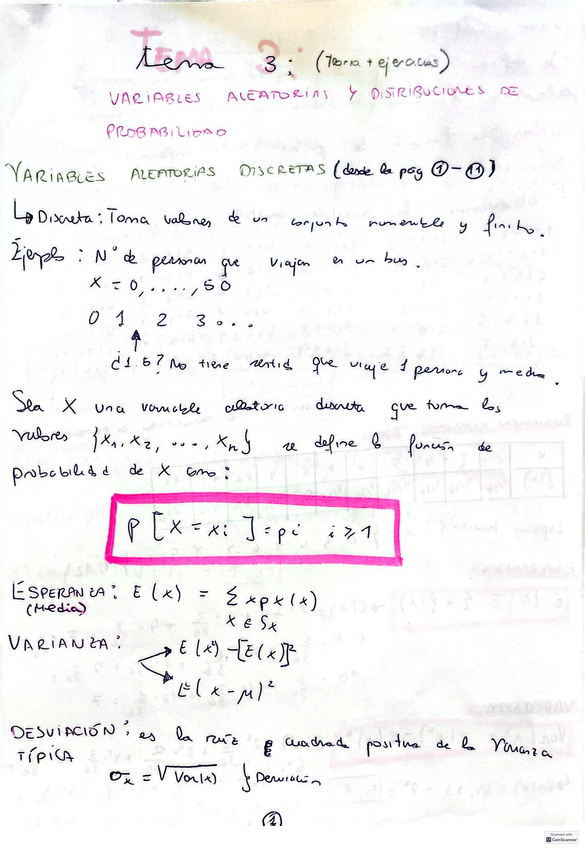 tema 3: (Teoria + ejercicios)
VARIABLES ALEATORIAS Y DISTRIBUCIONES DE
PROBABILIDAD
VARIABLES ALEATORIAS DISCRETAS (desde la pág ① - ⑪)
↳ Discreta: Toma valores de un conjunto numerable y finito.
Ejemplo: Nº de personas que viajan en un bus.
X = 0, ...., 50
0 1 2 3 ...
¿1.5? No tiene sentido que viaje 1 persona y media.
Sea X una variable aleatoria discreta que toma los
valores {x1, x2, ..., xn} se define la función de
probabilidad de X como:
P [X = xi] = pi i ≥ 1
ESPERANZA: E(x) = Σ x p x (x)
(Media) x ∈ Sx
VARIANZA: E(x²) - [E(x)]²
E(x - μ)²
DESVIACIÓN: es la raíz cuadrada positiva de la Varianza
TÍPICA
σx = √Var(x) } Desviación
①
Scanned with
CamScanner